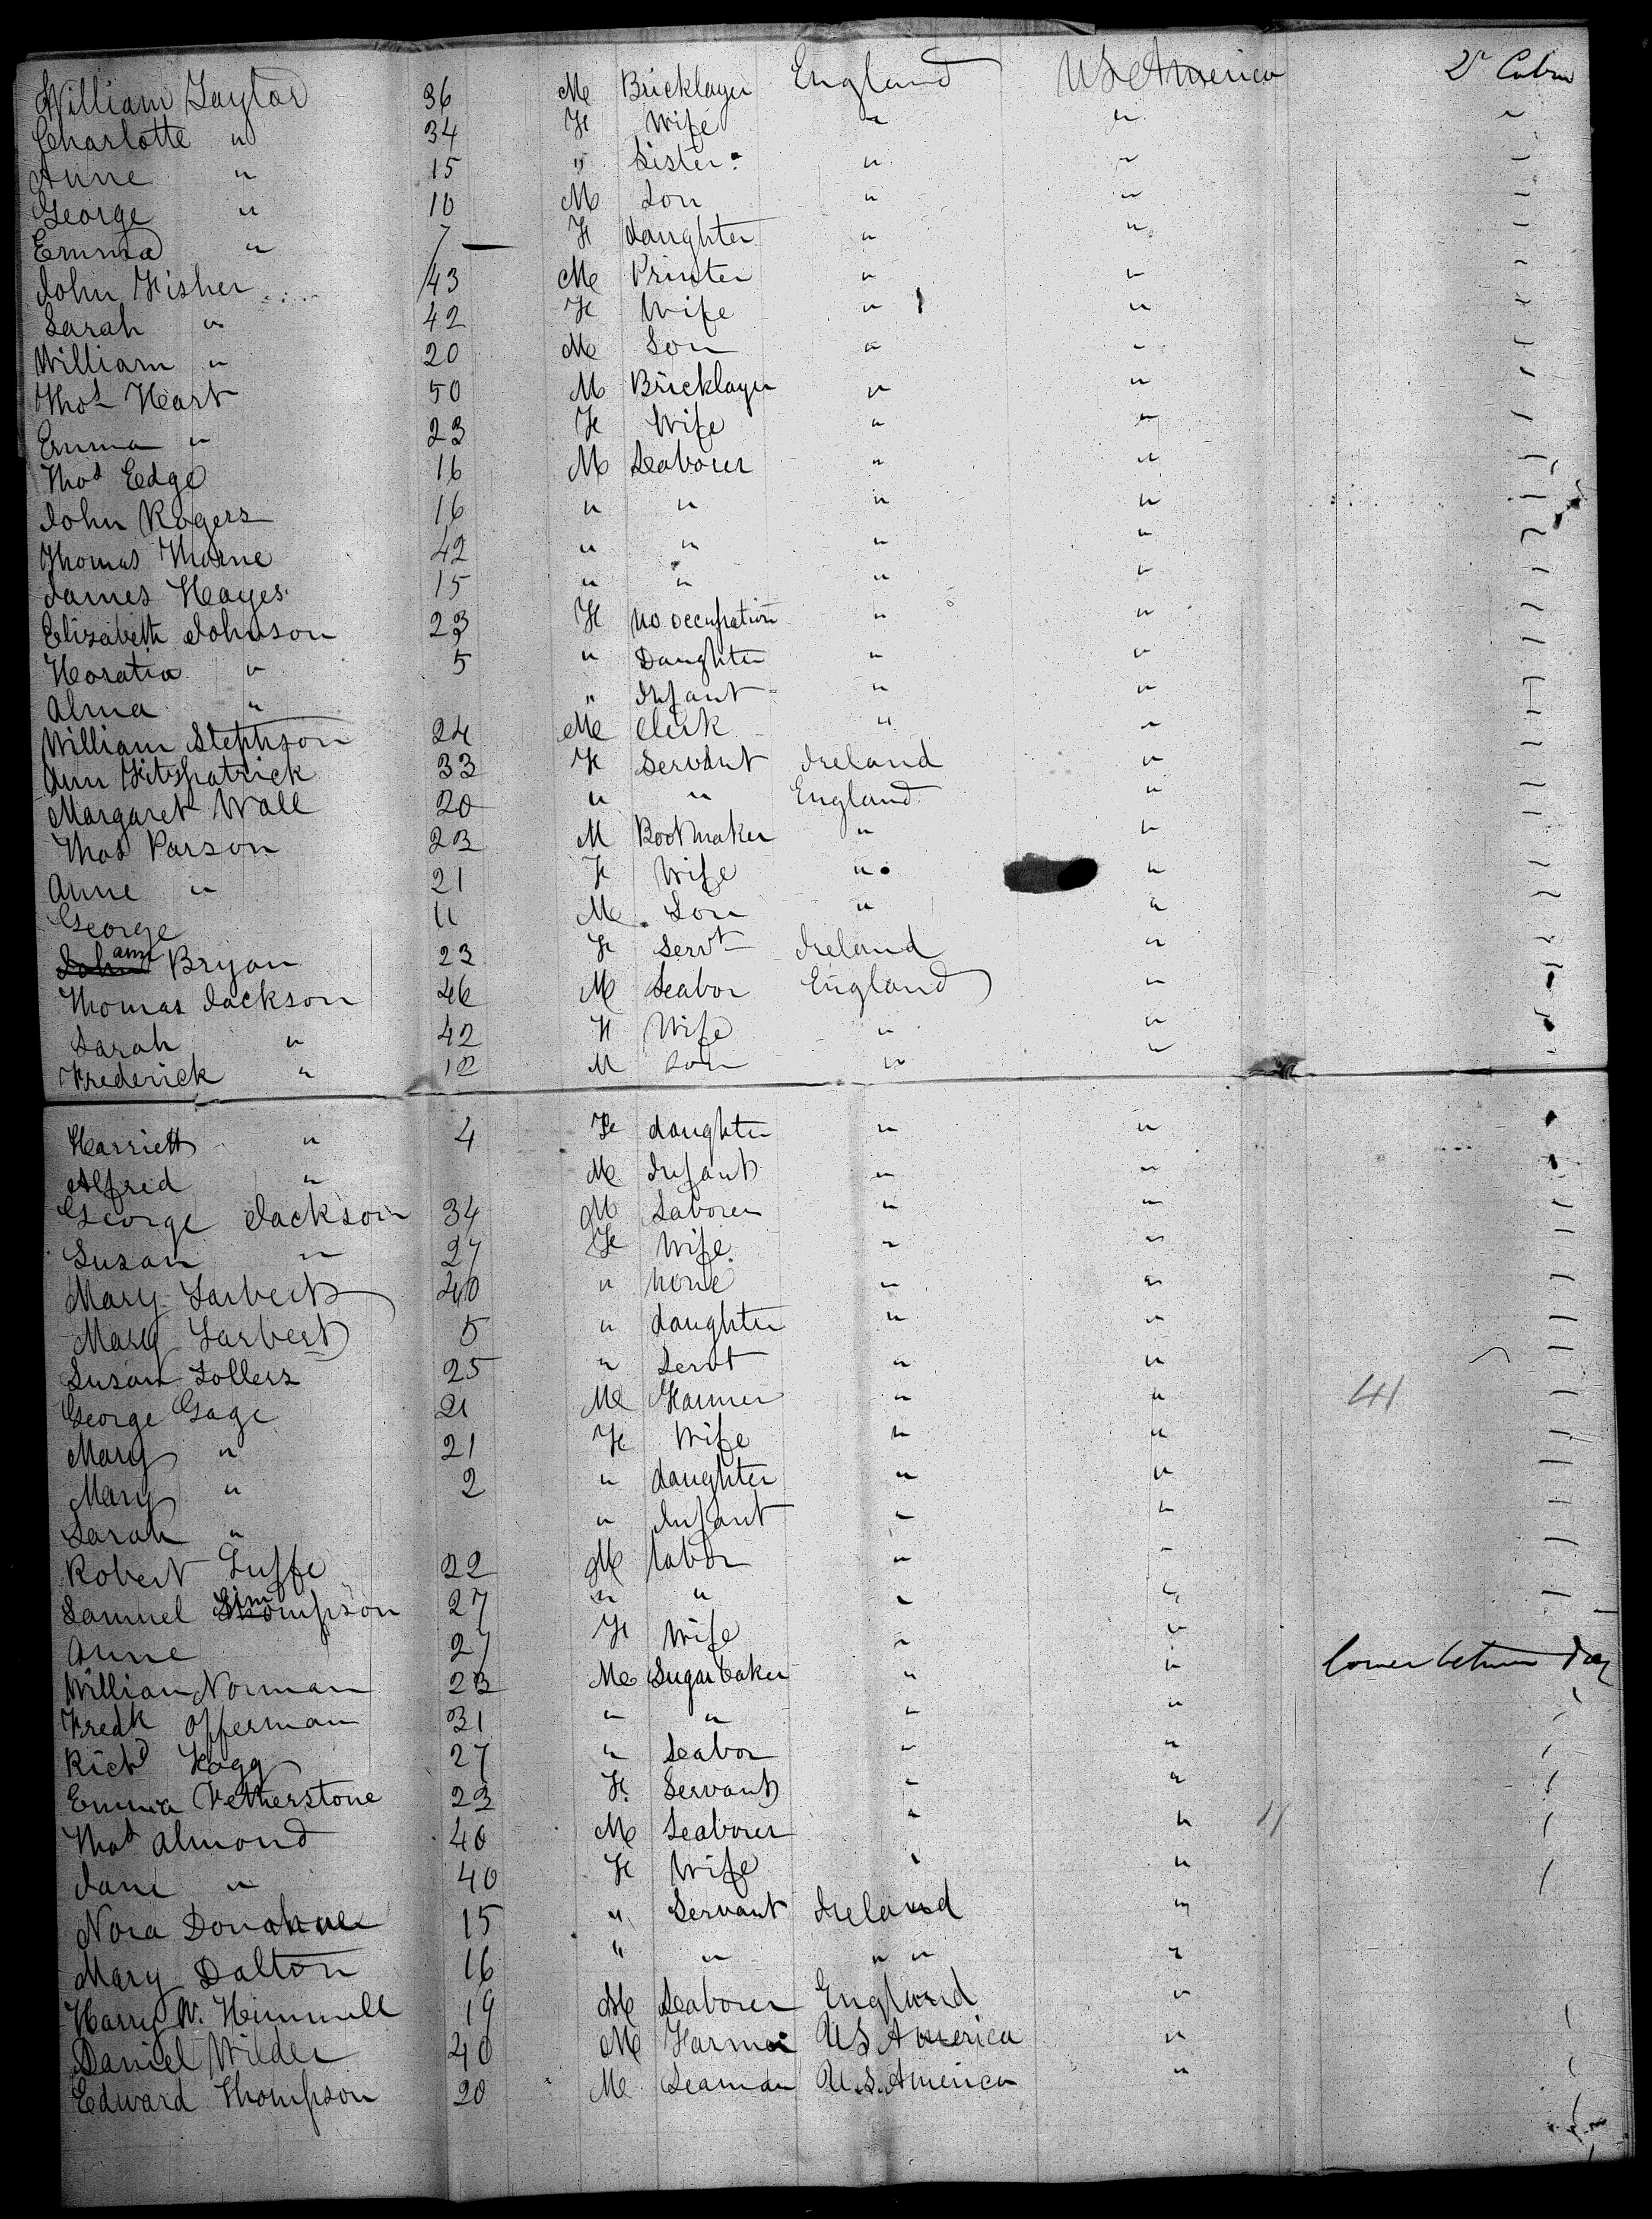 William Taylor 36 M Bricklayer England U S America 2d Cabin
Charlotte " 34 F Wife " " "
Anne " 15 " Sister " "
George " 10 M Son " "
Emma " 7 F daughter " "
John Fisher 43 M Printer " "
Sarah " 42 F Wife " "
William " 20 M Son " "
Thos Heart 50 M Bricklayer " "
Emma " 23 F Wife " "
Thos Edge 16 M Leaborer " "
John Rogers 16 " " " "
Thomas Thorne 42 " " " "
James Hayes 15 " " " "
Elizabeth Johnson 23 F no occupation " "
Horatia " 5 " Daughter " "
Alma " " Infant " "
William Stephson 24 M Clerk " "
Ann Fitzpatrick 33 F Servant Ireland "
Margaret Wall 20 " " England "
Thos Parson 23 M Bootmaker " "
Anne " 21 F Wife " "
George 11 M Son " "
Johann Bryan 23 F Servt Ireland "
Thomas Jackson 46 M Leabor England "
Sarah " 42 F Wife " "
Frederick " 12 M Son " "
Harriett " 4 F daughter " "
Alfred " M Infant " "
George Jackson 34 M Laborer " "
Susan " 27 F Wife " "
Mary Larbert 40 " none " "
Mary Larbert 5 " daughter " "
Susan Lollers 25 " Servt " "
George Gage 21 M Farmer " " 41
Mary " 21 F Wife " "
Mary " 2 " daughter " "
Sarah " " Infant " "
Robert Luffe 22 M labor " "
Samuel Simpson 27 " " " "
Anne 27 F Wife " "
William Norman 23 M Sugar baker " " lower between
Fredk Offerman 31 " " " "
Richd Fogg 27 " Leabor " "
Emma Fetherstone 23 F Servant " "
Thos Almond 40 M Leaborer " " 11
Jane " 40 F Wife " "
Nora Donohue 15 " Servant Ireland "
Mary Dalton 16 " " " " "
Harry W. Himmell 19 M Leaborer England "
Daniel Wilder 40 M Farmer U S America "
Edward Thompson 20 M Seaman U.S. America "